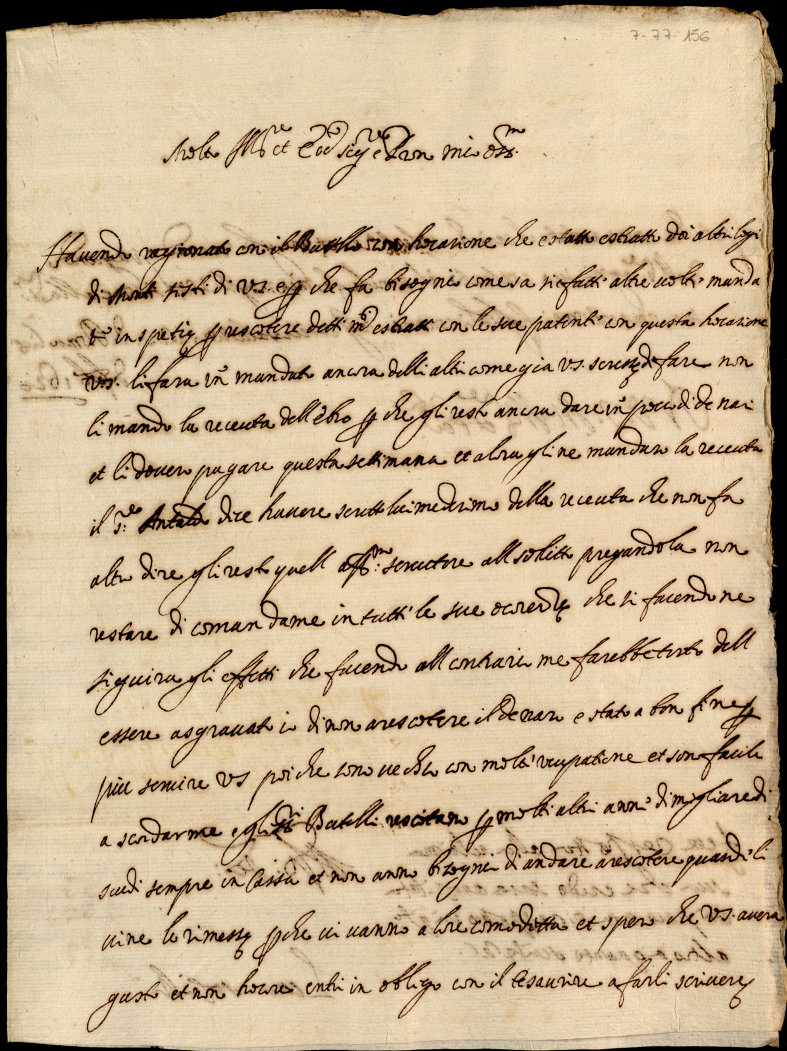 7-77-156
Molt Ill.re et Ecc.te Sig.re e Pron mio oss.m
Havendo ragionato con il Butelli con hocasione che e stato estratti doi altri logi
di Monti risti di V.S. e p che fa bisogni come sa si fatti altre volte manda
in spetie p rescotere detti m.ti estratti con le sue patenti con questa hocasione
V.S. li fara un mandato ancora delli altri come gia V.S. scrisse di fare non
li mando la receuta dell ebro p che gli resto ancora dare un poco di denari
et li dovero pagare questa settimana et alora gli ne mandaro la receuta
il s.re Antaldi dice havere scritto lui medesimo della receuta che non fa
altro dire gli resto quell aff.mo servitore all solito pregandola non
restare di comandame in tutti le sue ocorenze che si facendo ne
siguira gli effetti che facendo all contrario me farebbe torto dell
essere asgravato io di non arescotere il denaro e stato a bon fine p
piu servire VS poi che sono vechio con molte ocupatione et son facile
a scordarme e gli Butelli rescotano p molti altri anno di migliare di
scudi sempre in Cassa et non anno bisogni di andare arescotere quando li
vine le rimesse p che vi vanno a lore comodita et spero che V.S. avera
gusto et non hocore entri in obligo con il tesaurire a farli scrivere